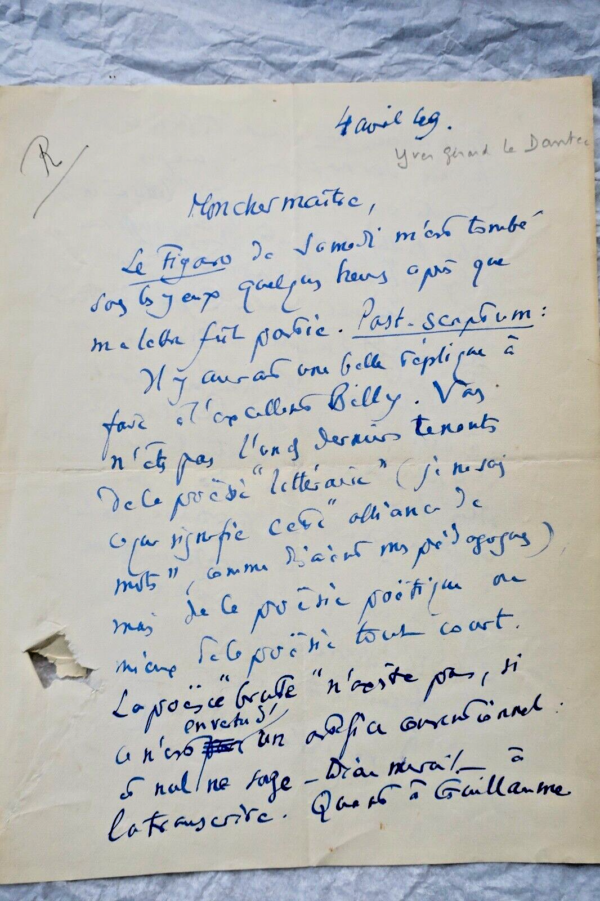 4 avril 49.
R
Yves Gérard le Dantec
Mon cher maître,
Le Figaro de Samedi m'est tombé
sous les yeux quelques heures après que
ma lettre fût partie. Post-scriptum :
Il y aurait une belle réplique à
faire à l'excellent Billy. Vous
n'êtes pas l'un des derniers tenants
de la poësie "littéraire" (je ne sais
ce que signifie cette "alliance de
mots", comme disaient mes pédagogues),
mais de la poësie poëtique ou
mieux de la poësie tout court.
La poësie "brute" n'existe pas, si
en vertu d'
ce n'est un artifice conventionnel :
et nul ne songe – Dieu merci ! – à
la transcrire. Quant à Guillaume